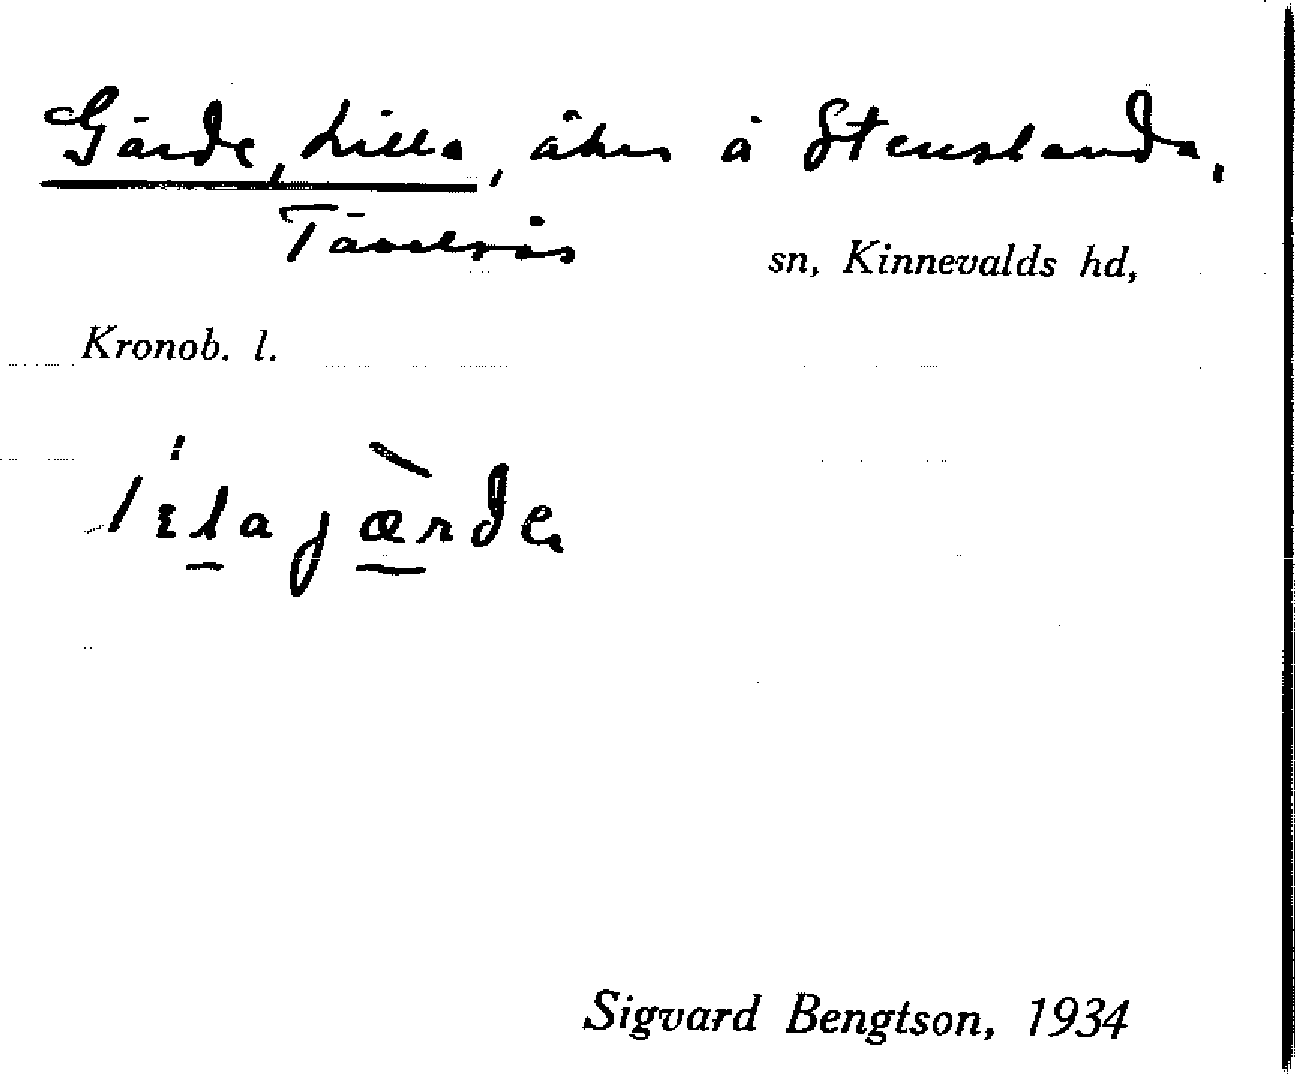 Gärde, Lilla, åker å Stenslanda,
Tävelsås sn, Kinnevalds hd,
Kronob. l.
Sigvard Bengtson, 1934